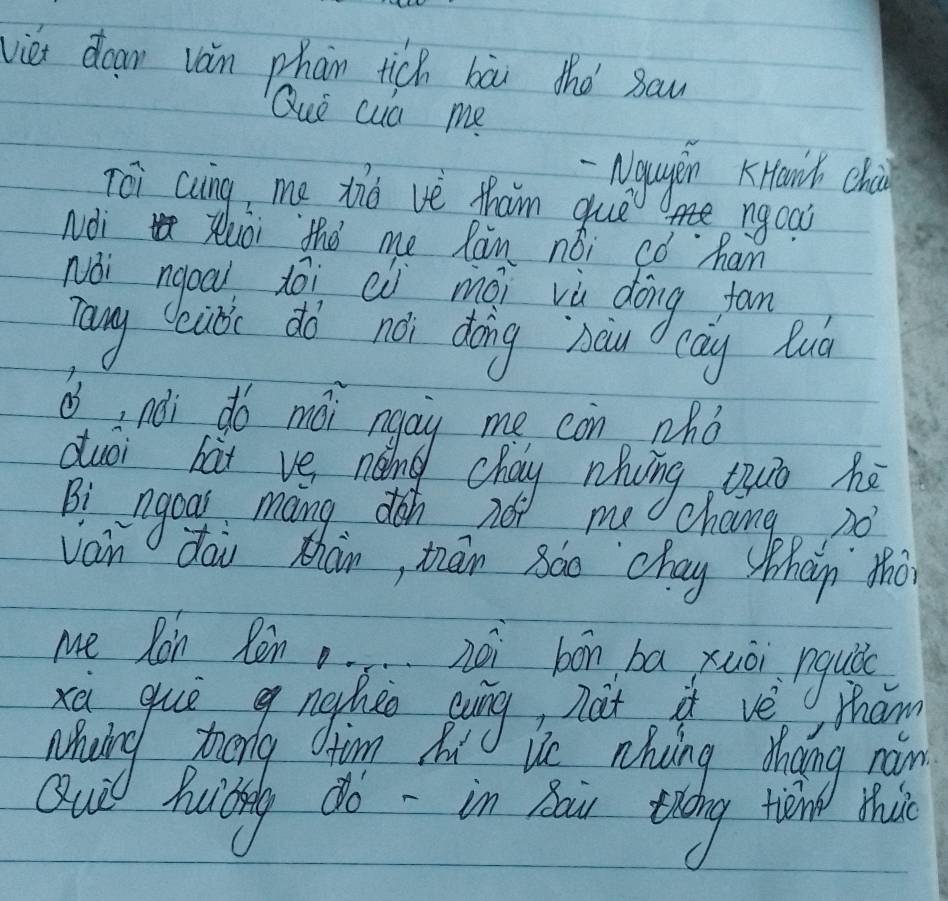 Viết đoạn văn phân tích bài thơ sau
Quê của mẹ
- Nguyễn KHánh Châu
Tôi cùng mẹ trở về thăm quê ngoại
Nơi tuổi thơ mẹ lăn nơi có hạn
Nơi ngoại tôi cứ mỗi vụ đông tàn
Tay cuốc đó nơi đồng sâu cấy lúa
Ở, nơi đó mỗi ngày mẹ còn nhỏ
đuổi bắt ve nắng cháy những trưa hè
Bị ngoại mắng đòn rơi mẹ chẳng sợ
Vẫn đầu trần, trần sáo chạy khắp thôn
Mẹ lớn lên .... rồi bôn ba xuôi ngược
xa quê nghèo cũng rất ít về thăm
Nhưng trong tim kí ức những tháng năm
Quê hương đó - in sâu trong tiềm thức